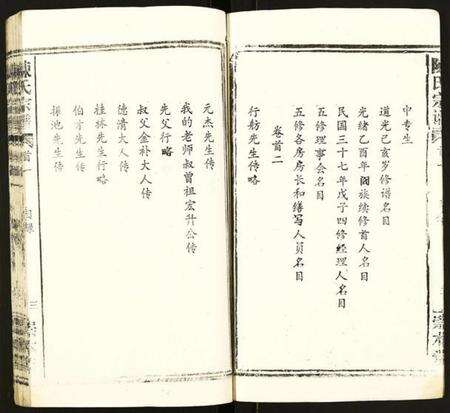 中专生
道光己亥岁修谱名目
光绪乙酉年阖族续修首人名目
民国三十七年戊子四修经理人名目
五修理事会名目
五修各房房长和缮写人员名目
卷首二
行舫先生传略
元杰先生传
我的老师叔曾祖宏升公传
先父行略
叔父金补大人传
德清大人传
桂林先生行略
伯才先生传
振池先生传
目录
三
陳氏宗譜
卷首一